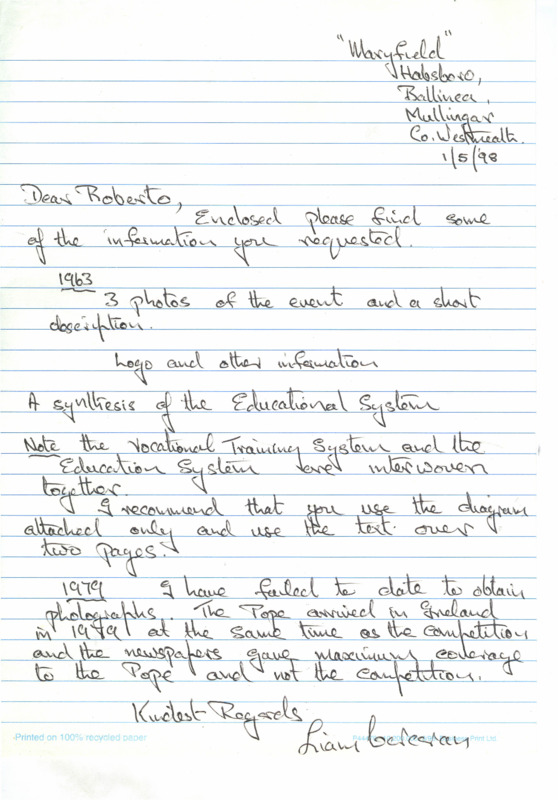 "Maryfield"
Habsboro,
Ballinea,
Mullingar
Co. Westmeath.
1/5/98
Dear Roberto,
Enclosed please find some
of the information you requested.
1963
3 photos of the event and a short
description.
Logo and other information
A synthesis of the Educational System
Note the Vocational Training System and the
Education System are interwoven
together.
I recommend that you use the diagram
attached only and use the text over
two pages.
1979 I have failed to date to obtain
photographs. The Pope arrived in Ireland
in 1979 at the same time as the competition
and the newspapers gave maximum coverage
to the Pope and not the competition.
Kindest Regards
Liam Corcoran
Printed on 100% recycled paper
Print Ltd.